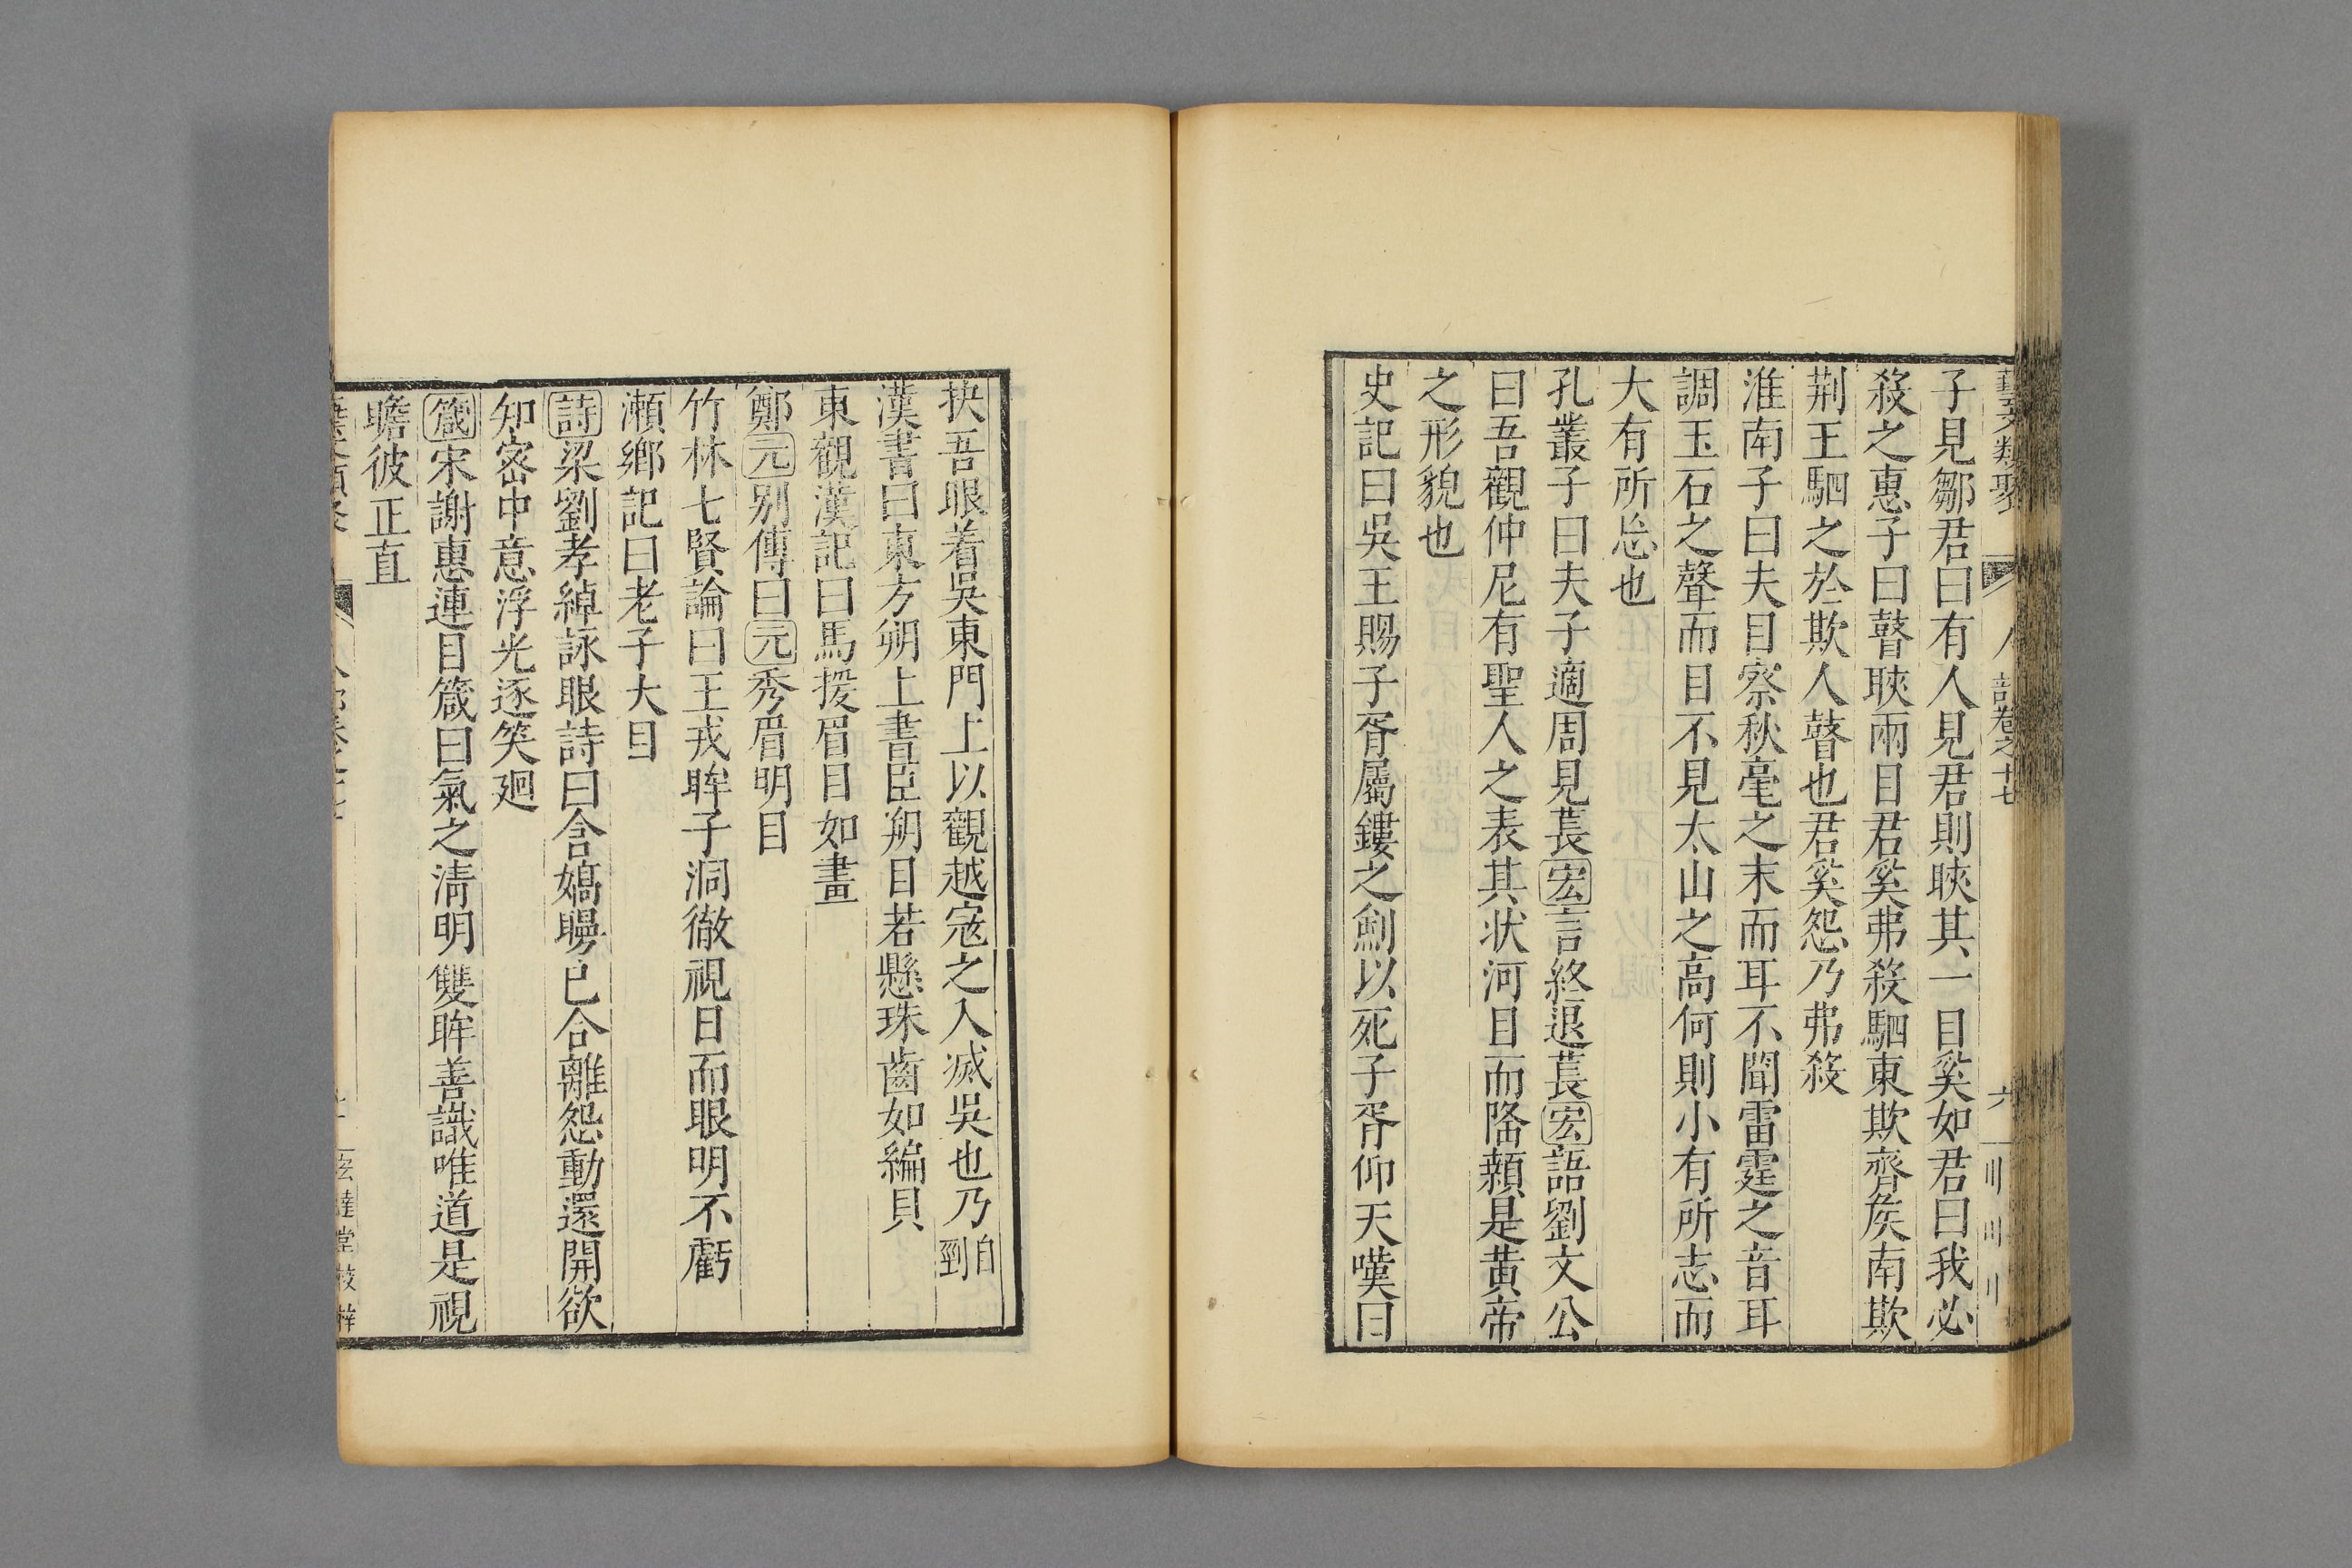 子見鄒君曰有人見君則䀹其一目奚如君曰我必
殺之惠子曰瞽䀹兩目君奚弗殺駟東欺齊侯南欺
荆王駟之於欺人瞽也君奚怨乃弗殺
淮南子曰夫目察秋毫之末而耳不聞雷霆之音耳
調玉石之聲而目不見太山之高何則小有所志而
大有所忘也
孔叢子曰夫子適周見萇宏言終退萇宏語劉文公
曰吾觀仲尼有聖人之表其狀河目而隆顙是黄帝
之形貌也
史記曰吳王賜子胥屬鏤之劍以死子胥仰天嘆曰
抉吾眼着吳東門上以觀越寇之入滅吳也乃自剄
漢書曰東方朔上書臣朔目若懸珠齒如編貝
東觀漢記曰馬援眉目如畫
鄭元别傳曰元秀眉明目
竹林七賢論曰王戎眸子洞徹視日而眼明不虧
瀨鄉記曰老子大目
詩梁劉孝綽詠眼詩曰含嬌曼已合離怨動還開欲
知密中意浮光逐笑廻
箴宋謝惠連目箴曰氣之清明雙眸善識唯道是視
瞻彼正直